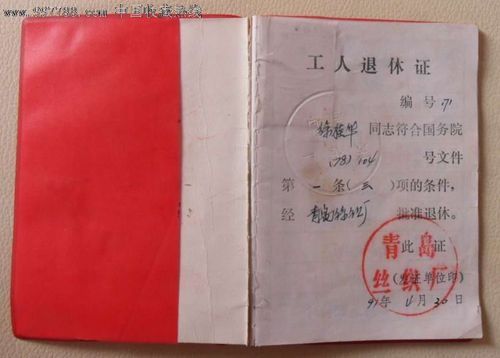 www.997788.com 中国收藏热线
工人退休证
编号 71
徐桂华 同志符合国务院
(78) 104 号文件
第 一 条 (三) 项的条件,
经 青岛丝织厂 批准退休。
此 证
青岛
丝织厂
(发证单位印)
91年 4月 30日